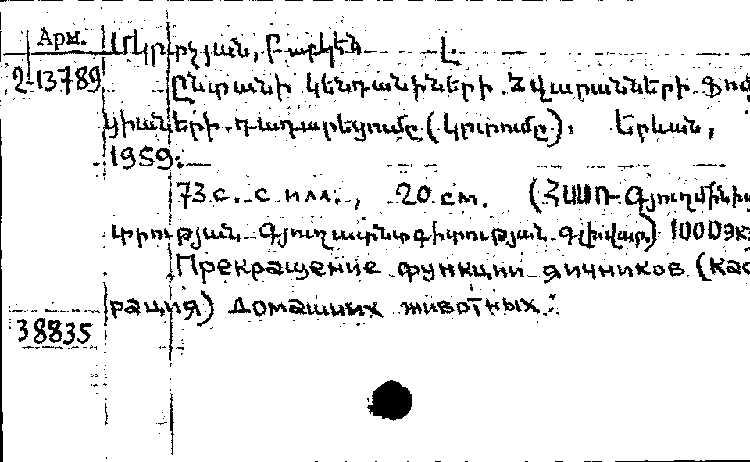 Арм.
Մկրտչյան, Բաբկեն Լ.
2-13789
Ընտանի կենդանիների ձվարանների ֆունկ
ցիաների դադարեցումը (կրտումը): Երևան,
1959:
73 с. с илл., 20 см. (ՀՍՍՌ Գյուղմինիս
տրության Գյուղատնտգիտության գլխվարչ) 1000экз
Прекращение функции яичников (каст
рация) домашних животных.
38835